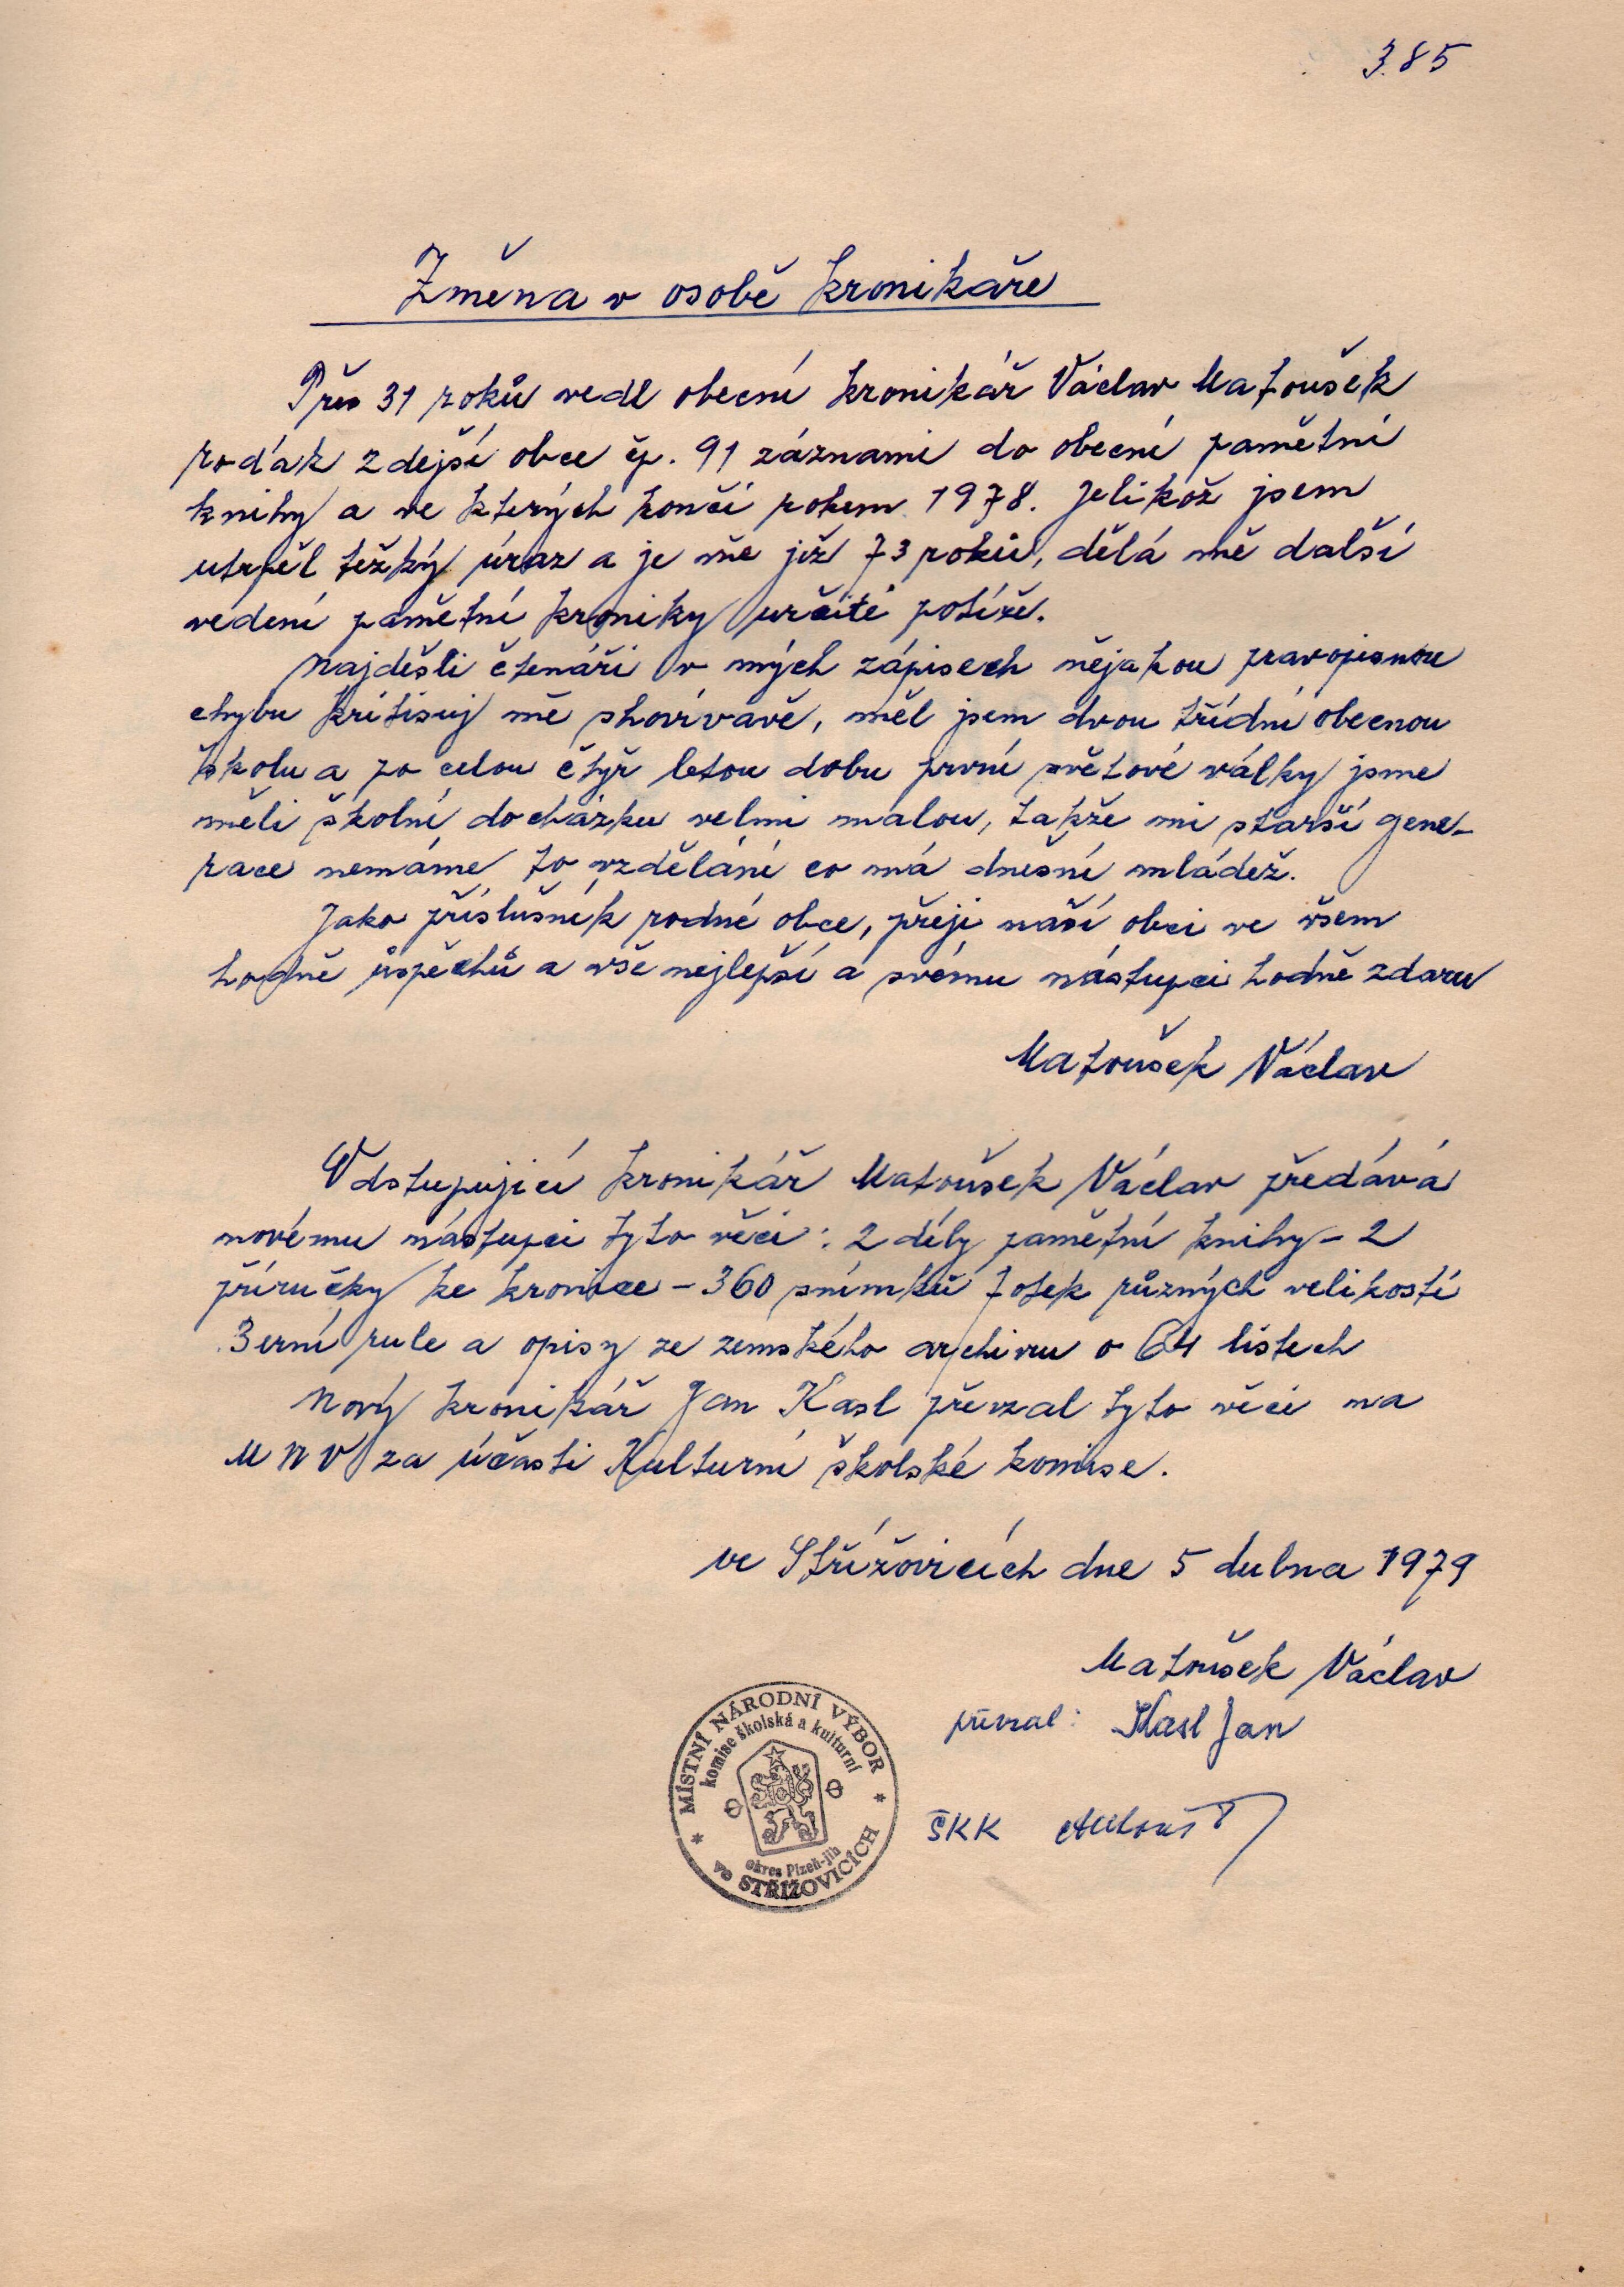 385
Změna v osobě kronikáře
Přes 31 roků vedl obecní kronikář Václav Matoušek
roďák zdejší obce čp. 91 záznami do obecní pamětní
knihy a ve kterých končí rokem 1978. Jelikož jsem
utrpěl težký úraz a je mě již 73 roků, dělá mě další
vedení pamětní kroniky určité potíže.
Najdešli čtenáři v mých zápisech nějakou pravopisnou
chybu kritisuj mě shovívavě, měl jsem dvou třídní obecnou
školu a po celou čtyř letou dobu první světové války jsme
měli školní docházku velmi malou, takže mi starší gene-
race nemáme to vzdělání co má dnešní mládež.
Jako příslušník rodné obce, přeji naší obci ve všem
hodně úspěchů a vše nejlepší a svému nástupci hodně zdaru
Matoušek Václav
Odstupující kronikář Matoušek Václav předává
novému nástupci tyto věci: 2 díly pamětní knihy - 2
příručky ke kronice - 360 snímků fotek různých velikostí
Berní rule a opisy ze zemského archivu o 64 listech
Nový kronikář Jan Kasl převzal tyto věci na
MNV za účasti Kulturní školské komise.
ve Střížovicích dne 5 dubna 1979
Matoušek Václav
převzal: Kasl Jan
ŠKK
MÍSTNÍ NÁRODNÍ VÝBOR
komise školská a kulturní
okres Plzeň-jih
ve STŘÍŽOVICÍCH